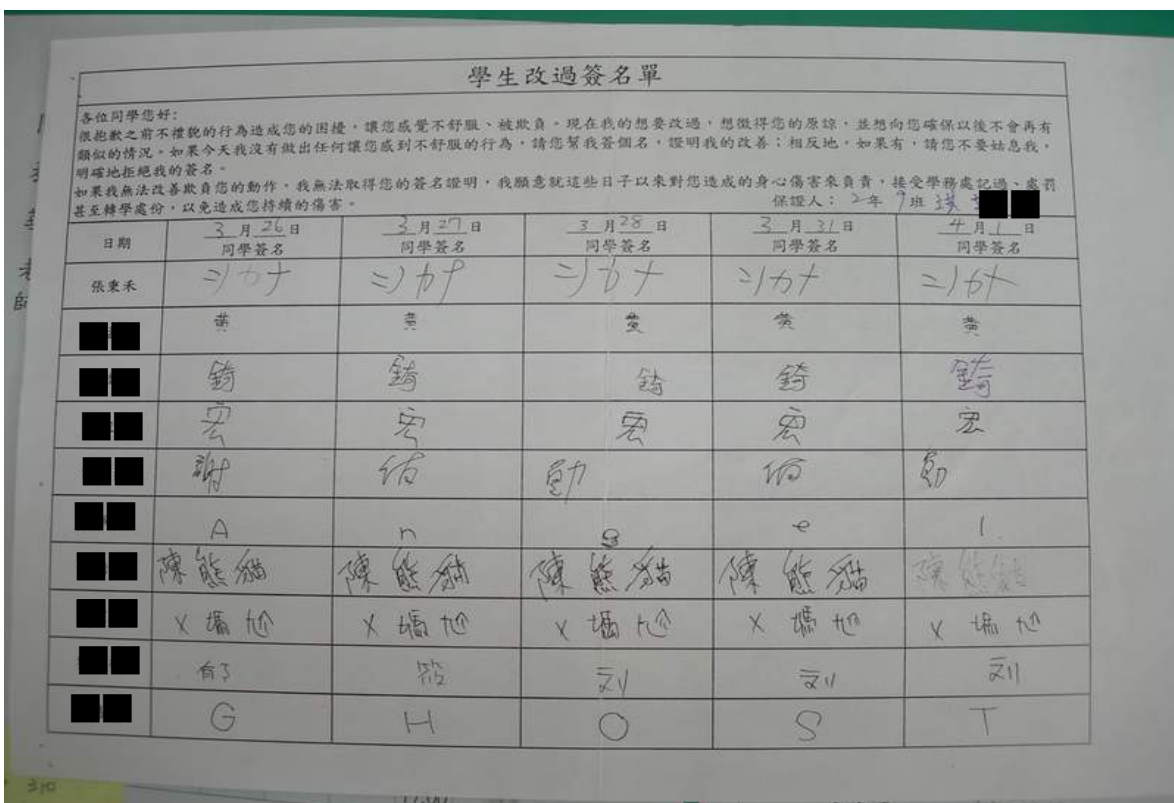 學生改過簽名單
各位同學您好:
很抱歉之前不禮貌的行為造成您的困擾,讓您感覺不舒服、被欺負。現在我的想要改過,想徵得您的原諒,並想向您確保以後不會再有
類似的情況。如果今天我沒有做出任何讓您感到不舒服的行為,請您幫我簽個名,證明我的改善;相反地,如果有,請您不要姑息我,
明確地拒絕我的簽名。
如果我無法改善欺負您的動作,我無法取得您的簽名證明,我願意就這些日子以來對您造成的身心傷害來負責,接受學務處記過、處罰
甚至轉學處份,以免造成您持續的傷害。 保證人: 2年 9班
日期 3月26日 3月27日 3月28日 3月31日 4月1日
同學簽名 同學簽名 同學簽名 同學簽名 同學簽名
張秉禾
黃 黃 黃 黃 黃
錡 錡 錡 錡 錡
宏 宏 宏 宏 宏
謝
A n g e l
陳熊貓 陳熊貓 陳熊貓 陳熊貓 陳熊貓
G H O S T
師
310